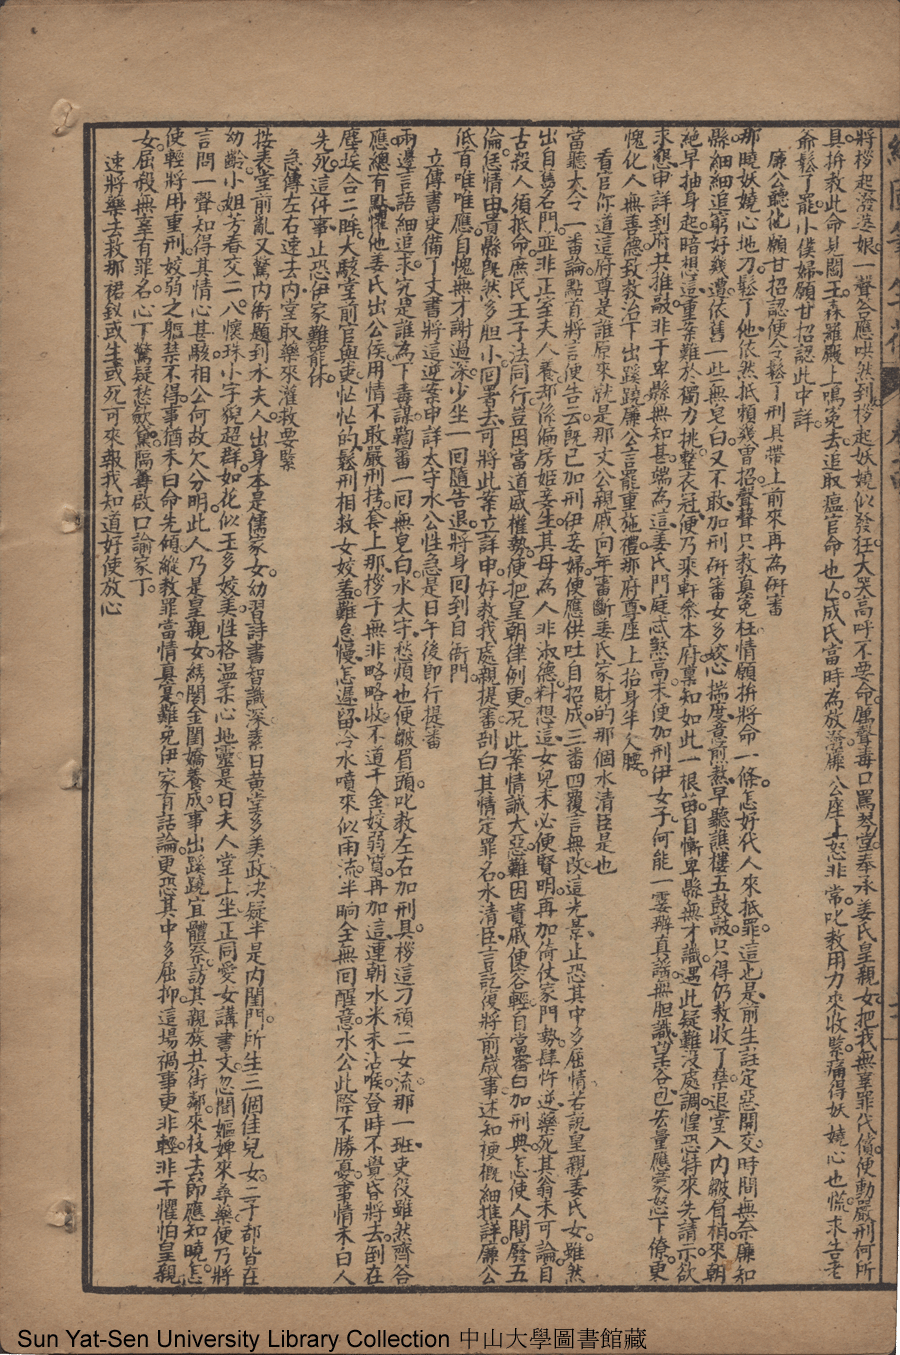 將桚起潑潑娘一聲答應哄然到桚起妖嬈似發狂大哭高呼不要命厲聲毒口罵琴堂奉承姜氏皇親女把我無辜罪代償便動嚴刑何所
具拚教此命見閻王森羅殿上鳴冤去追取瘟官命也亡成氏當時為放潑廉公座上怒非常叱教用力來收緊痛得妖嬈心也慌求告老
爺鬆了罷小僕婦願甘招認此中詳
廉公聽化願甘招認便令鬆了刑具帶上前來再為研審
那曉妖嬈心地刁鬆了他依然抵賴幾曾招聲聲只教真冤枉情願拚將命一條怎好代人來抵罪這也是前生註定惡開交時間無奈廉知
縣細細追窮好幾遭依舊一些無皂白又不敢加刑研審女多姣心揣度意煎熬早聽譙樓五鼓敲只得仍教收了禁退堂入內皺眉梢來朝
絕早抽身起暗想這重案難於獨力挑整衣冠便乃來軒參本府稟知如此一根苗自慚卑縣無才識遇此疑難沒處調惶恐特來先請示欲
求懇申詳到府共推敲非干卑縣無知甚端為這姜氏門庭忒煞高未便加刑伊女子何能一霎辨真誵無胆識望谷包宏量應蒙恕下僚更
愧化人無善德致教治下出蹊蹺廉公言罷重施禮那府尊座上抬身半欠腰
看官你道這府尊是誰原來就是那文公親戚向年審斷姜氏家財的那個水清臣是也
當聽太令一番論點首將言便告云既已加刑伊妾婦便應供吐自招成三番四覆言無改這光景止恐其中多屈情若說皇親姜氏女雖然
出自舊名門並非正室夫人養都係偏房姬妾生其母為人非淑德料想這女兒未必便賢明再加倚仗家門勢肆忤逆藥死其翁未可論自
古殺人須抵命庶民王子法同行豈因當道威權勢便把皇朝律例更況此案情誠大惡難因貴戚便容輕自當審白加刑典怎使人間廢五
倫偺情由貴縣既然多胆小回書去可將此案立詳申好教我處親提審剖白其情定罪名水清臣言訖復將前歲事述知梗概細推詳廉公
低首唯唯應自愧無才謝過深少坐一回隨告退將身回到自衙門
立傳書吏備了文書將這逆案申詳太守水公性急是日午後即行提審
兩邊言語細追求究是誰為下毒謀鞫審一回無皂白水太守愁煩也便皺眉頭叱教左右加刑具桚這刁頑二女流那一班吏役雖然齊答
應總有點懼他姜氏出公侯用情不敢嚴刑挵套上那桚子無非略略收不道千金姣弱質再加這連朝水米未沾喉登時不覺昏將去倒在
塵埃合二眸大駭堂前官與吏忙忙的鬆刑相救女姣羞難怠慢怎遲留冷水噴來似雨流半晌全無回醒意水公此際不勝憂事情未白人
先死這件事止恐伊家難罷休
急傳左右速去內堂取藥來灌救要緊
按表堂前亂又驚內衙題到水夫人出身本是儒家女幼習詩書智識深素日黃堂多美政决疑半是內閨門所生三個佳兒女二子都皆在
幼齡小姐芳春交二八懷珠小字猊超群如花似玉多姣美性格温柔心地靈是日夫人堂上坐正同愛女講書文忽聞嫗婢來尋藥便乃將
言問一聲知得其情心甚駭相公何故欠分明此人乃是皇親女綉閣金閨嬌養成事出蹊蹺宜體察訪其親族共街鄰來枝去節應知曉怎
使輕將用重刑姣弱之軀禁不得事猶未白命先傾縱教罪當情真寔難免伊家有話論更恐其中多屈抑這場禍事更非輕非干懼怕皇親
女屈殺無辜有罪名心下驚疑愁歛黛隔簾啟口諭家丁
速將藥去救那裙釵或生或死可來報我知道好使放心
Sun Yat-Sen University Library Collection 中山大學圖書館藏